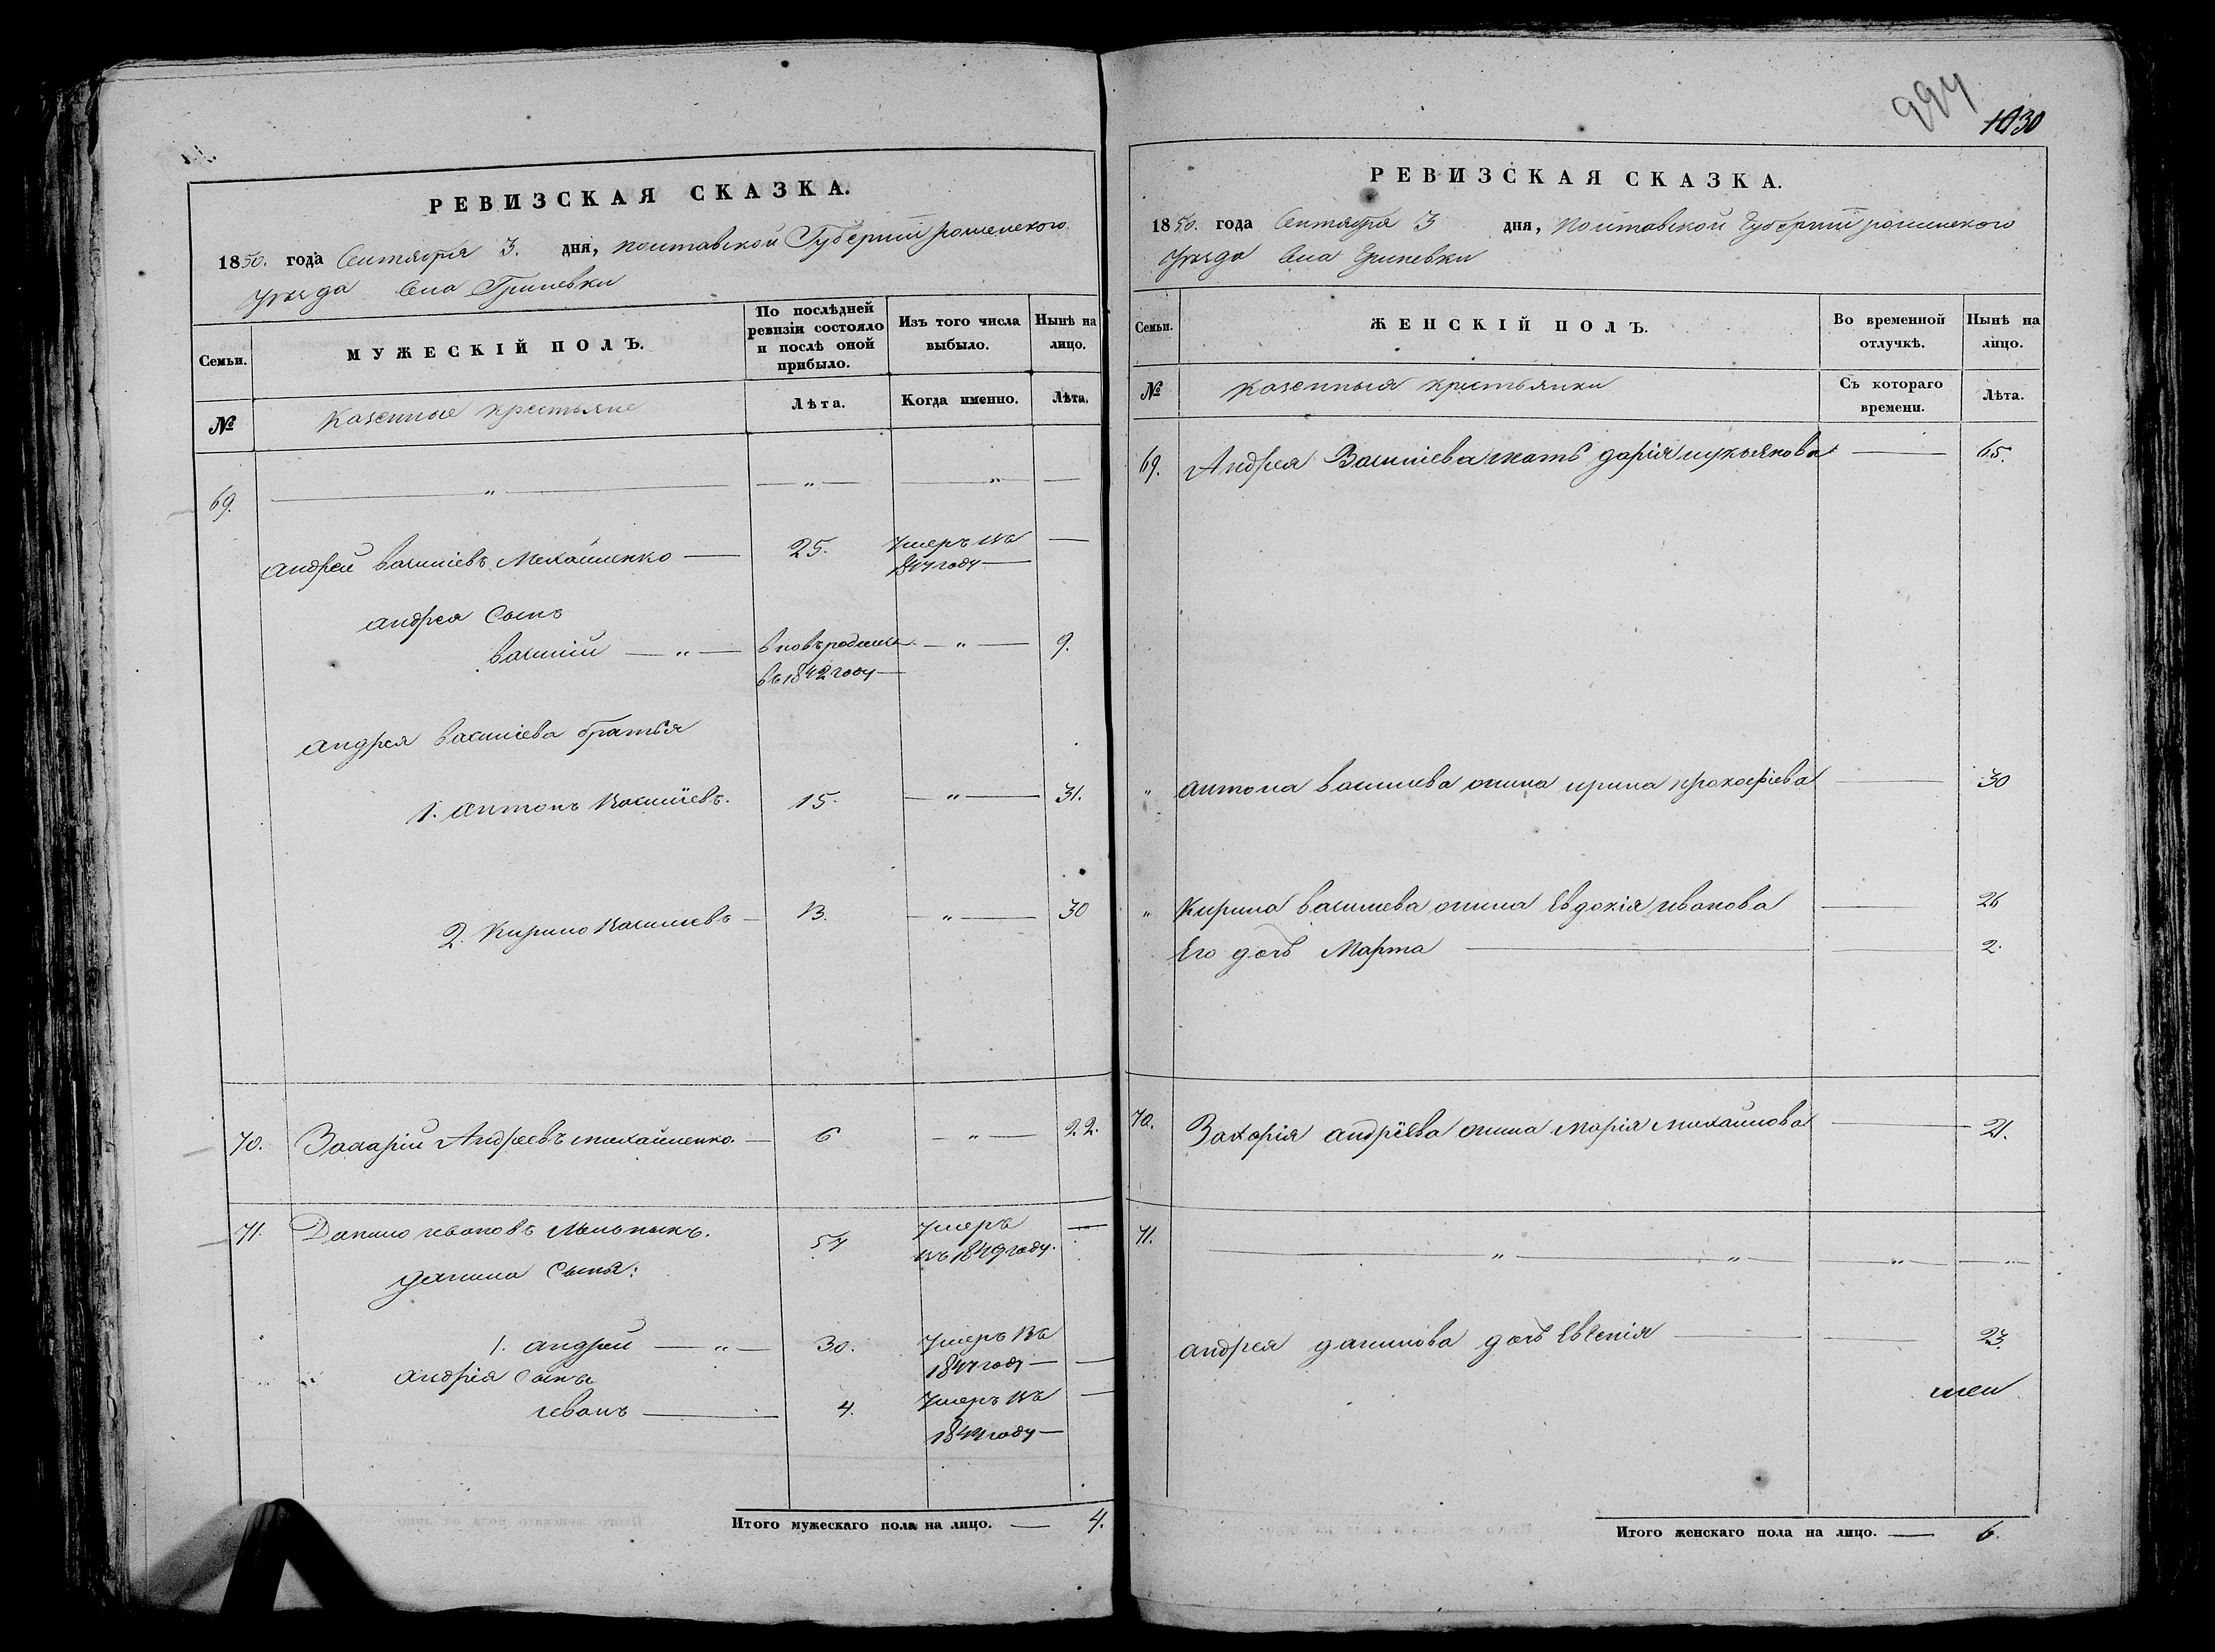 РЕВИЗСКАЯ СКАЗКА.
1850. года Сентября 3. дня, полтавской Губернии роменского
Уезда Села Гриневки
Семьи.
МУЖЕСКІЙ ПОЛЪ.
По послѣдней ревизіи состояло и послѣ оной прибыло.
Изъ того числа выбыло.
Нынѣ на лицо.
№
Казенные крестьяне
Лѣта.
Когда именно.
Лѣта.
69. — „ — — „ — — „ — —
Андрей василіевъ Михайленко — 25. Умеръ въ —
1847 году —
андрея Сынъ
василій — „ — вновърожденъ — „ — 9.
въ 1842 году —
андрея василіева братья
1. антонъ василіевъ. 15. — „ — 31.
2. Кирило василиевъ — 13. — „ — 30
70. Захарій Андреевъ михайленко. — 6 — „ — 22.
71. Данило ивановъ Мельникъ. 54 Умеръ —
въ 1849 году.
данила Сыны:
1. андрей — „ — 30. Умеръ въ
1847 году — —
андрія Сынъ
иванъ — 4. Умеръ въ —
1844 году —
Итого мужескаго пола на лицо. — 4.
994
1030
РЕВИЗСКАЯ СКАЗКА.
1850. года Сентября 3 дня, полтавской Губернии роменского
Уезда Села Гриневки
Семьи.
ЖЕНСКІЙ ПОЛЪ.
Во временной отлучкѣ.
Нынѣ на лицо.
№
казенныя крестьянки
Съ котораго времени.
Лѣта.
69. Андрея Василіева мать дарія лукьянова — 65.
„ антона василиева жина ирина прокофіева — 30
„ Кирила василиева жина Евдокія иванова — 26
Его дочь Марта — 2.
70. Захорія андріева жина марія михайлова — 21.
71. — „ — „ — — „ — — „ —
андрея данилова дочь Евгенія — 23.
Итого женскаго пола на лицо. — 6.